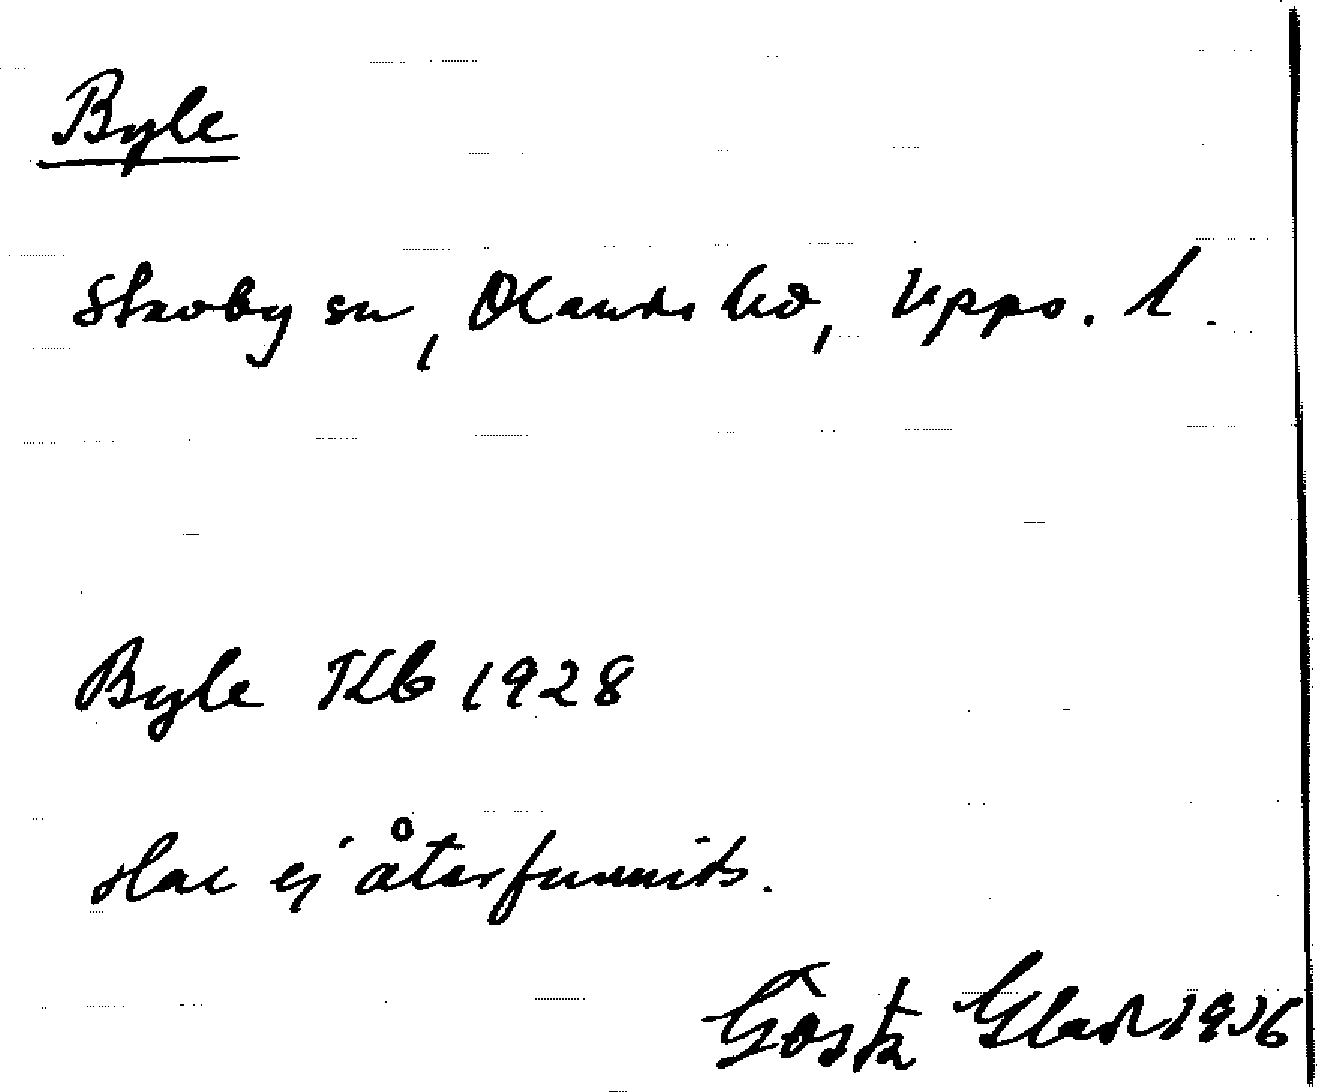 Byle
Skoby sn, Olands hd, Upps. l.
Byle TKb 1928
Har ej återfunnits.
Gösta